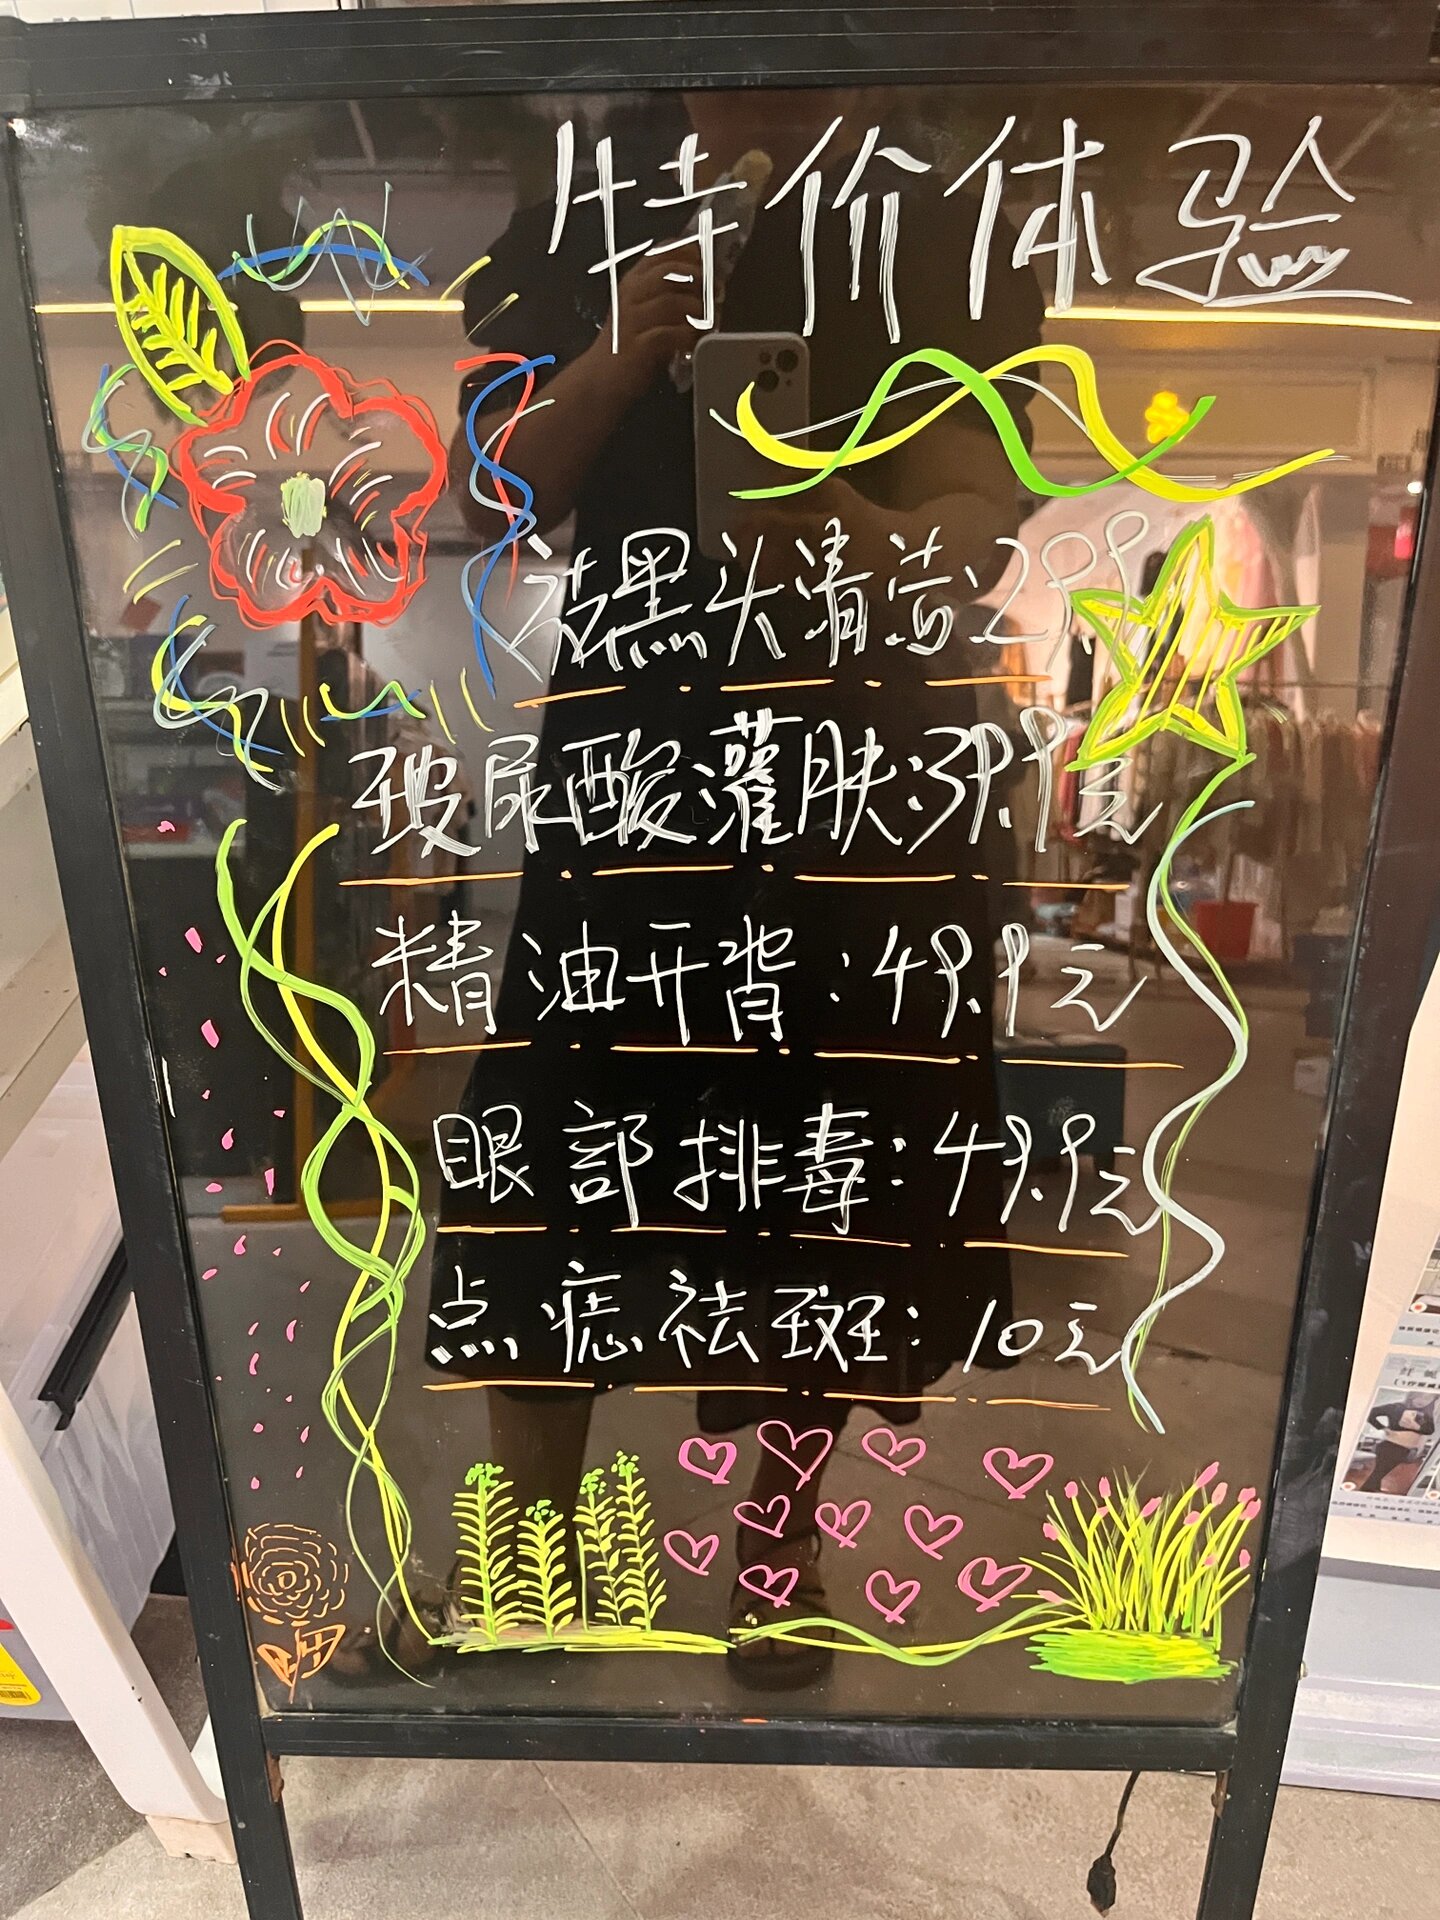 特价体验
黑头清 29.9
玻尿酸灌肤:39.9元
精油开背:49.9元
眼部排毒:49.9元
点痣祛斑:10元